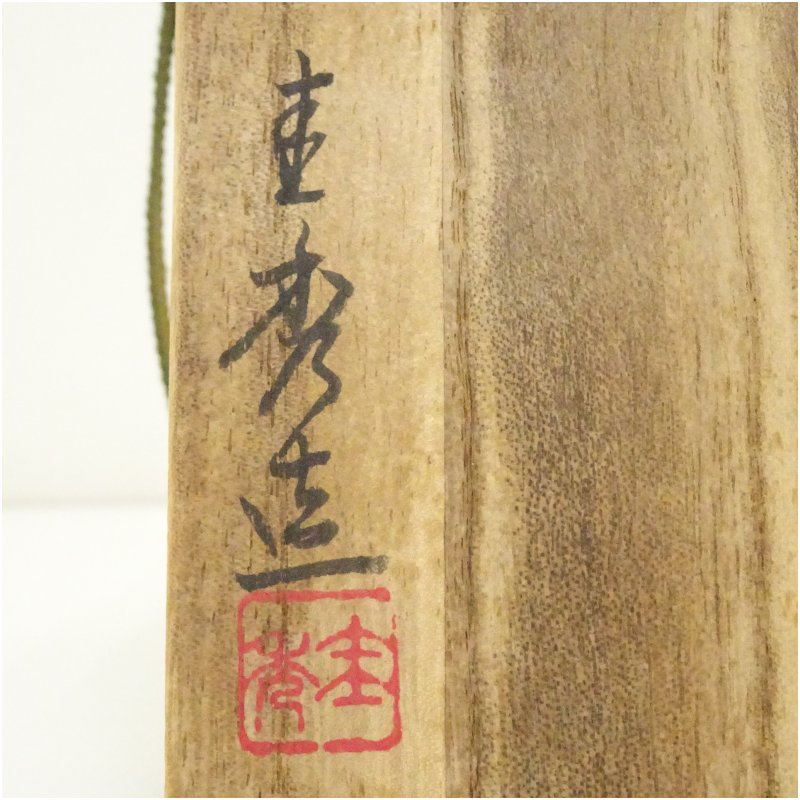 圭秀造
圭秀